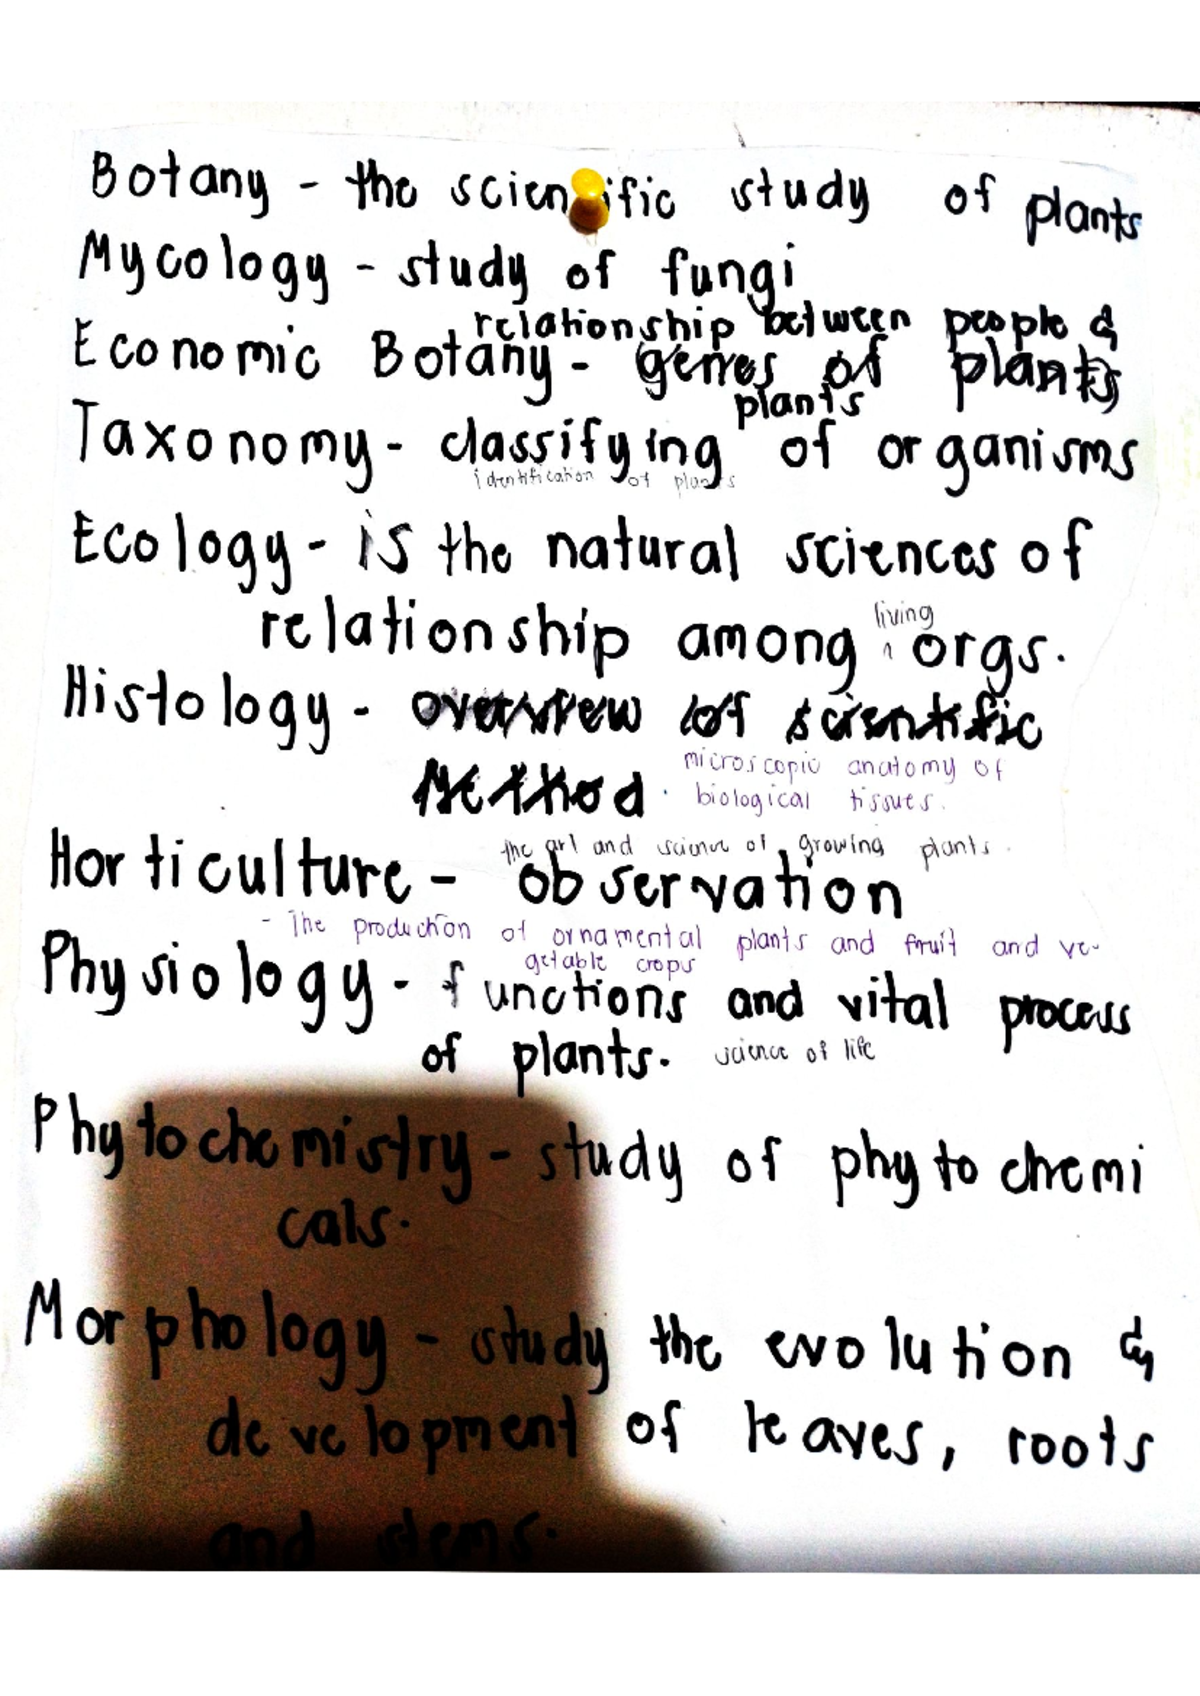 Botany - the scientific study of plants
Mycology - study of fungi
relationship between people &
Economic Botany - genres of plants
plants
Taxonomy - classifying of organisms
identification of plants
Ecology - is the natural sciences of
living
relationship among ^ orgs.
Histology - overview of scientific
Method.
microscopic anatomy of
biological tissues.
the art and science of growing plants.
Horticulture - observation
- The production of ornamental plants and fruit and ve-
getable crops
Physiology - functions and vital process
of plants. science of life
Phytochemistry - study of phytochemi
cals.
Morphology - study the evolution &
development of leaves, roots
and stems.